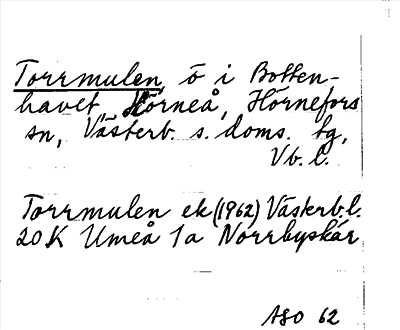 Torrmulen, ö i Botten-
havet, Hörneå, Hörnefors
sn, Västerb. s. doms. tg,
Vb. l.
Torrmulen ek (1962) Västerb. l.
20K Umeå 1a Norrbyskär
ASO 62